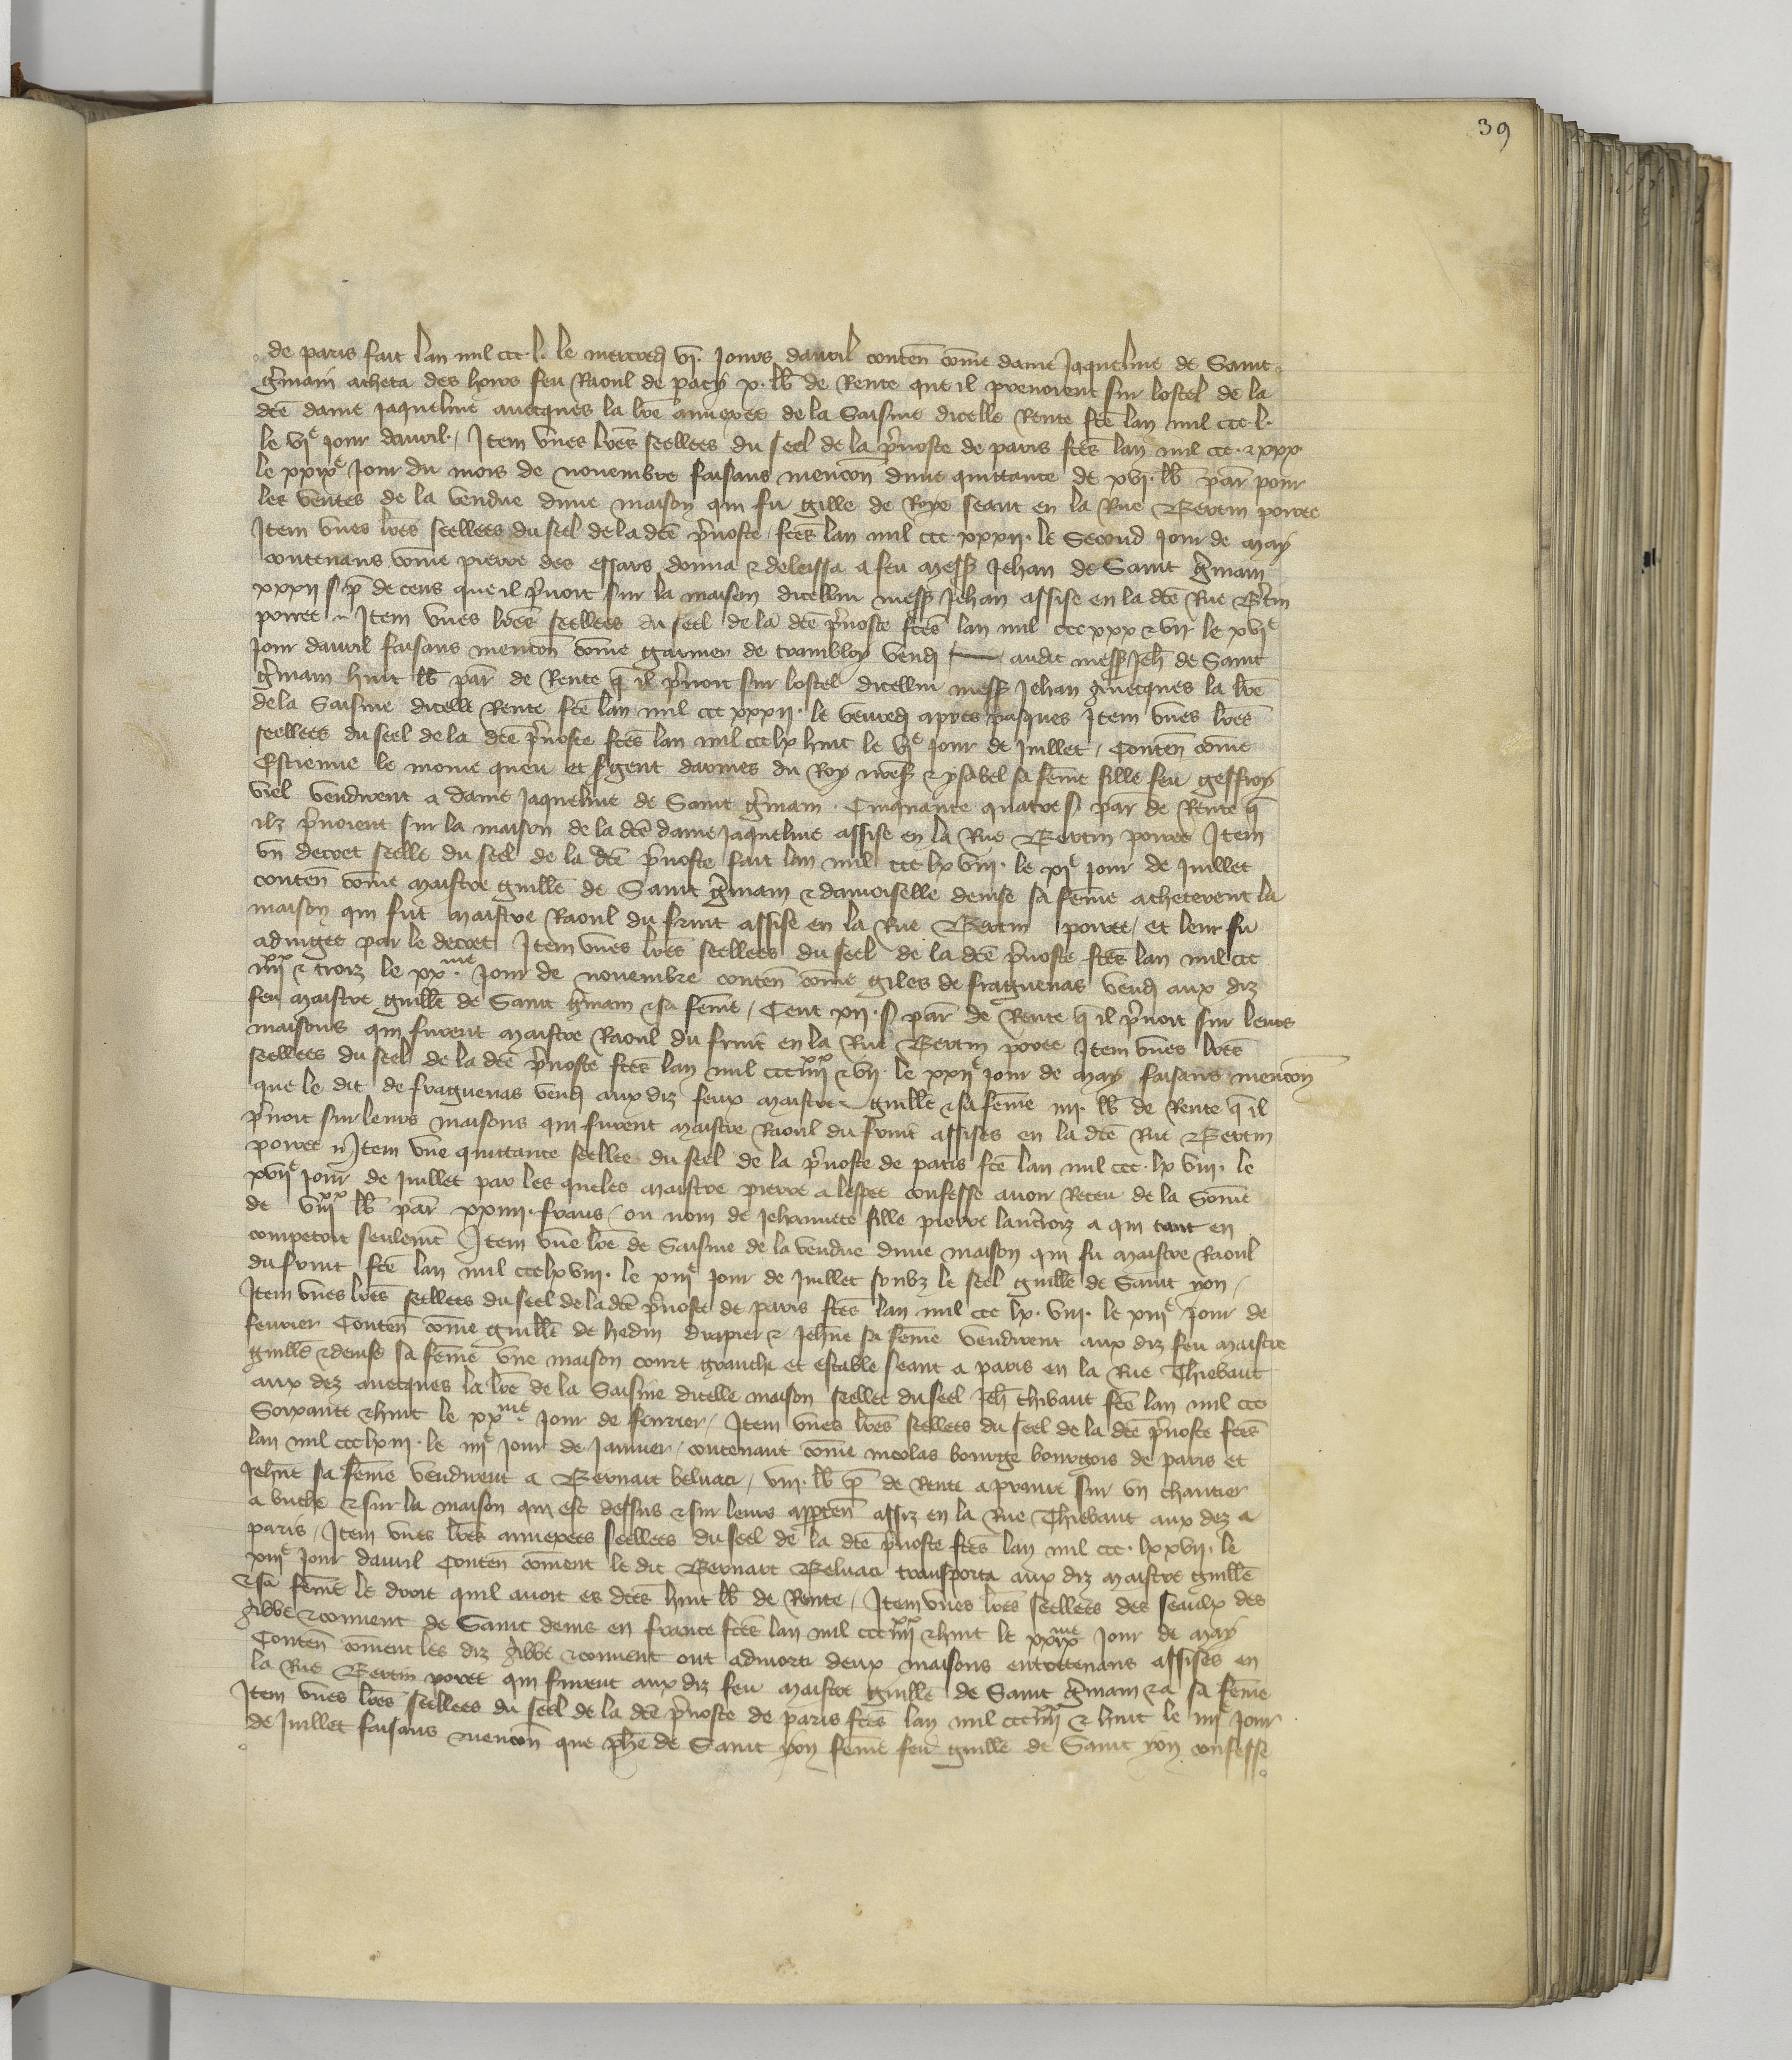 39
de paris fait lan mil ccc. l. le mercredi vi. jours davril conten̄ com̄e dame Jaqueline de Saint
g̃main acheta des hoirs feu Raoul de pacy x. lb̄ de Rente que il prenoient sur lostel de la
dc̄e dame jaqueline avecques la lr̄e annexee de la Saisine dicelle Rente fc̄e lan mil ccc. l.
le vi͏ͤ jour davril / Item un̄es lr̄es scellees du seel de la p̃voste de paris fc̄es lan mil ccc. & xxx.
le xxix͏ͤ jour du mois de novembre faisans menc̄on dune quittance de xvi. lb̄ par̄ pour
les ventes de la vendue dune maison qui fu gille de Roye seant en la Rue Bertin poree
Item un̄es lr̄es scellees du seel de la dc̄e p̃voste / fc̄es lan mil ccc xxxii. le Second jour de may
contenans com̄e pierre des essars donna & delessa a feu mess̄ Jehan de Saint g̃main
xxxii s. p̄ de cens que il p̃noit sur la maison dicellui mess̄ Jehan assise en la dc̄e Rue B̃tin
poree // Item un̄es lr̄es scellees du seel de la dc̄e p̃voste fc̄es lan mil ccc xxx & vii le xvi͏ͤ
jour davril faisans menc̄on com̄e garnier de trambloy vend̄ audit mess̄ Jeh̄ de Saint
g̃main huit lb̄ par̄ de Rente q̄ il p̃noit sur lostel dicellui mess̄ Jehan Avecques la lr̄e
de la Saisine dicelle Rente fc̄e lan mil ccc xxxii. le vendredi apres pasques Item un̄es lr̄es
scellees du seel de la dc̄e p̃voste fc̄es lan mil ccc lx huit le vi͏ͤ jour de juillet / Conten̄ com̄e
Estienne le moine queu et s̃gent darmes du Roy nr̄es̄ & ysabel sa fem̄e fille feu geffroy
viel vendirent a dame Jaqueline de Saint g̃main. Cinquante quatre s. par̄ de Rente q̄
ilz p̃noient sur la maison de la dc̄e dame Jaqueline assise en la Rue Bertin poree Item
un decret scelle du seel de la dc̄e p̃voste fait lan mil ccc lx viii. le xi͏ͤ jour de juillet
conten̄ com̄e maistre guill̄e de Saint g̃main & damoiselle denise sa fem̄e acheterent la
maison qui fut maistre Raoul du fruit assise en la Rue Bertin poree / et leur fu
adiugee par le decret Item un̄es lr̄es scellees du seel de la dc̄e p̃voste fc̄es lan mil ccc
iiiiˣˣ & troiz le xx͏ᵐᵉ. jour de novembre conten̄ com̄e giles de fraguenas vend̄ aux diz
feu maistre guill̄e de Saint g̃main & sa fem̄e / Cent xii. s. par̄ de Rente q̄ il p̃noit sur leurs
maisons qui furent maistre Raoul du fruit en la Rue Bertin poree Item un̄es lr̄es
scellees du seel de la dc̄e p̃voste fc̄es lan mil ccc iiiiˣˣ & vii. le xxii͏ͤ jour de may faisans menc̄on
que le dit de fraguenas vend̄ aux diz feux maistre guill̄e & sa fem̄e iii. lb̄ de Rente q̄ il
p̃noit sur leurs maisons qui furent maistre Raoul du fruit assises en la dc̄e Rue Bertin
poree // Item une quittance scellee du seel de la p̃voste de paris fc̄e lan mil ccc. lx viii. le
xvii͏ͤ jour de juillet par les queles maistre pierre a lespee confesse avoir Receu de la Som̄e
de viiiˣˣ lb̄ par̄ xxiiii. frans / ou nom de Jehannete fille pierre lanc̃roiz a qui tant en
competoit seulem̄t Item un̄e lr̄e de Saisine de la vendue dune maison qui fu maistre Raoul
du fruit fc̄e lan mil ccc lx viii. le xiii͏ͤ jour de juillet soubz le seel guill̄e de Saint yon /
Item un̄es lr̄es scellees du seel de la dc̄e p̃voste de paris fc̄es lan mil ccc lx. viii. le xiii͏ͤ jour de
fevrier Conten̄ com̄e guill̄e de hedin drapier & Jeh̄ne sa fem̄e vendirent aux diz feu maistre
guill̄e & denise sa fem̄e une maison court granche et estable seant a paris en la Rue Thiebaut
aux dez avecques la lr̄e de la Saisine dicelle maison scellee du seel Jeh̄ thibaut fc̄e lan mil ccc
Soixante & huit le xx͏ᵐᵉ. jour de fevrier / Item un̄es lr̄es scellees du seel de la dc̄e p̃voste fc̄es
lan mil ccc lx iii. le iiii͏ͤ jour de Janvier / contenant com̄e nicolas bourge bourgois de paris et
Jeh̄ne sa fem̄e vendirent a Bernart belnati / viii. lb̄ p̄ de Rente a prenre sur un chantier
a buche & sur la maison qui est dessus & sur leurs app̄rten̄ assiz en la Rue Thiebaut aux dez a
paris / Item un̄es lr̄es annexees scellees du seel de la dc̄e p̃voste fc̄es lan mil ccc. lxxvii. le
xiii͏ͤ jour davril Conten̄ com̄ent le dit Bernart Belnati transporta aux diz maistre guill̄e
& sa fem̄e le droit quil avoit es dc̄es huit lb̄ de Rente / Item un̄es lr̄es scellees des seaulx des
Abbe & convent de Saint denis en france fc̄es lan mil ccc iiiiˣˣ & huit le xxix͏ᵐᵉ jour de may
Conten̄ com̄ent les diz Abbe & convent ont admorti deux maisons entretenans assises en
la Rue Bertin poree qui furent aux diz feu maistre guill̄e de Saint g̃main & a sa fem̄e
Item un̄es lr̄es scellees du seel de la dc̄e p̃voste de paris fc̄es lan mil ccc iiiiˣˣ & huit le iiii͏ͤ jour
de juillet faisans menc̄on que ph̄e de Saint yon fem̄e feu guill̄e de Saint yon confesse